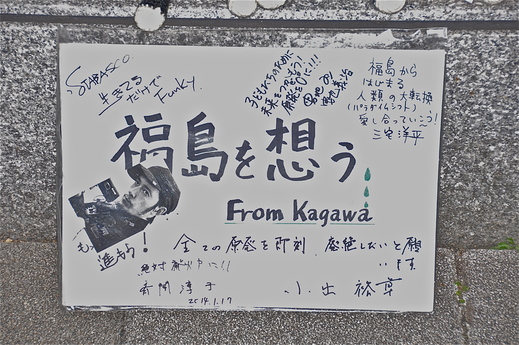 STABASCO
生きてる
だけで
Funky.
子どもたちのために
未来をつなごう!
原発を0に!!!
福島から
はじまる
人類の大転換
(パラダイムシフト)
愛し合っていこう!
三宅洋平
福島を想う
From Kagawa
もっと
進もう!
全ての原発を即刻、廃絶したいと願
います。
絶対
2014.1.17
小出 裕章